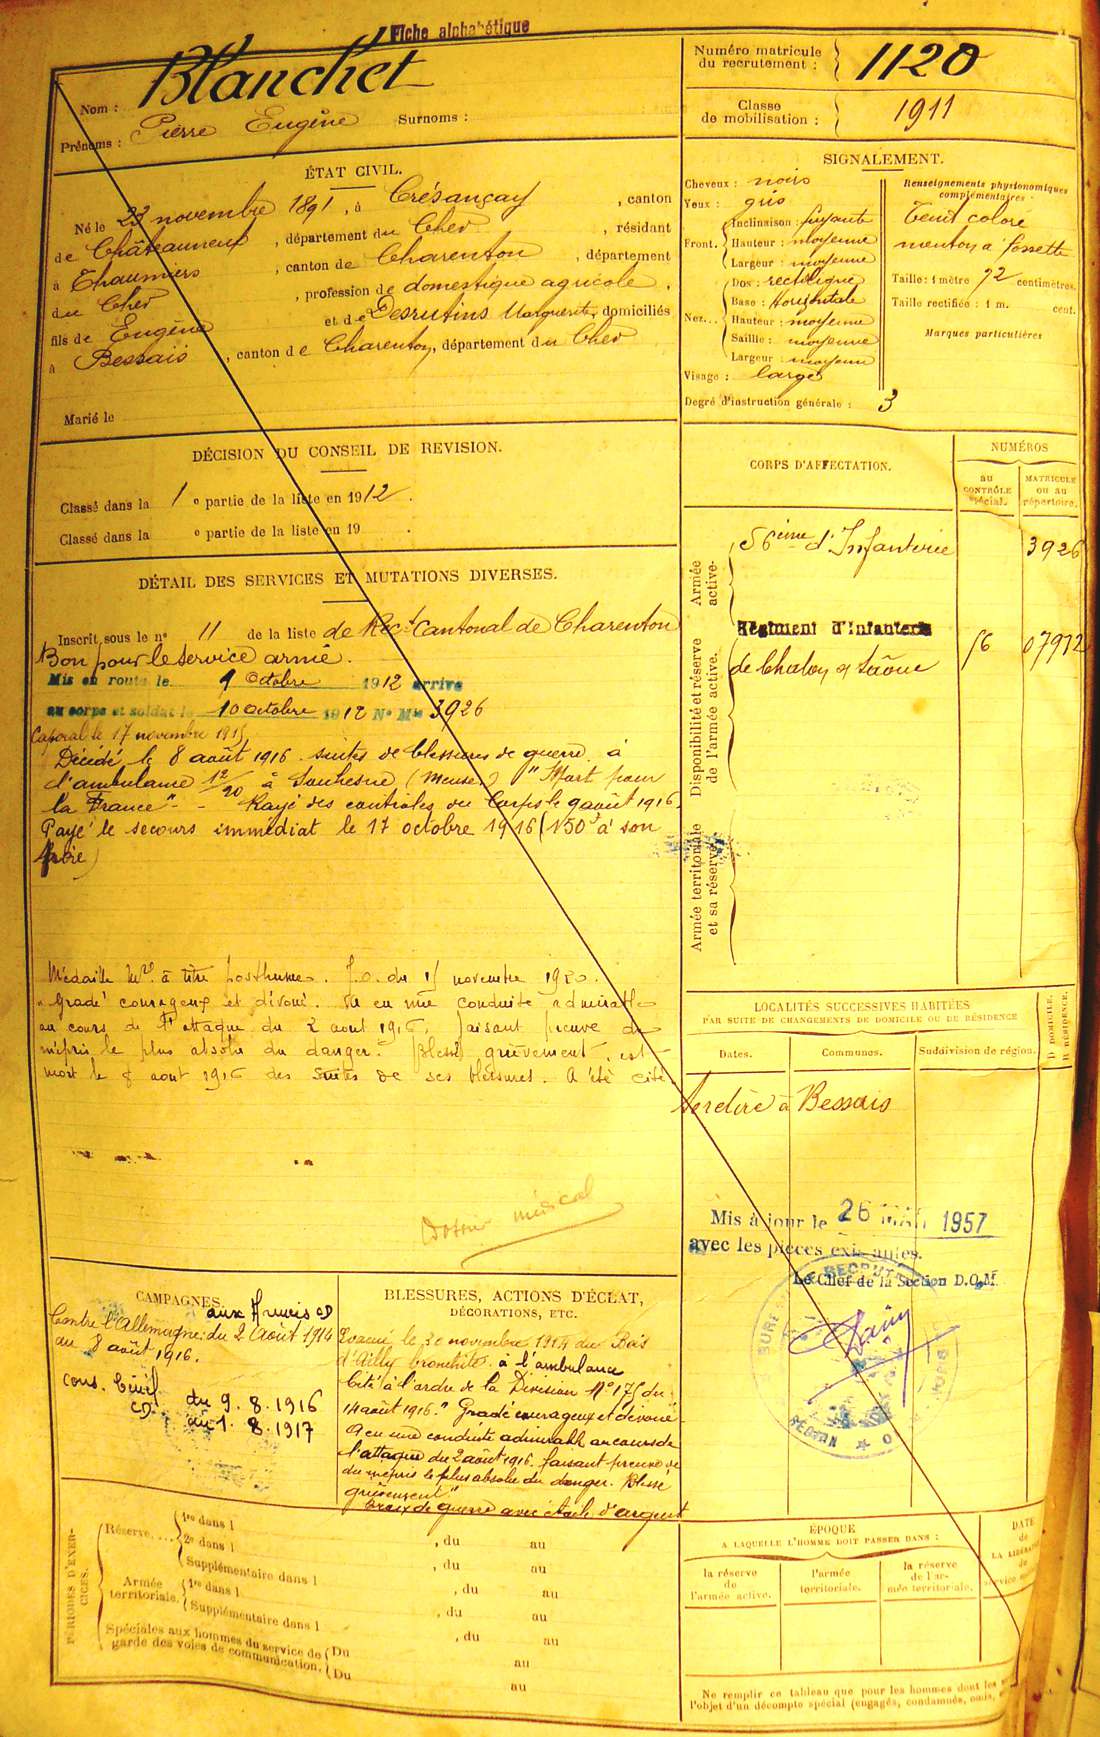 Fiche alphabétique
Nom : Blanchet
Prénoms : Pierre Eugène Surnoms :
Numéro matricule du recrutement : 1120
Classe de mobilisation : 1911
ÉTAT CIVIL.
Né le 23 novembre 1891, à Crésançay, canton
de Châteauneuf, département du Cher, résidant
à Thaumiers, canton de Charenton, département
du Cher, profession de domestique agricole.
fils de Eugène et de Desrutins Marguerite, domiciliés
à Bessais, canton de Charenton, département du Cher
Marié le
SIGNALEMENT.
Cheveux : noirs
Yeux : gris
Front. Inclinaison : fuyante
Hauteur : moyenne
Largeur : moyenne
Nez... Dos : rectiligne
Base : Horizontale
Hauteur : moyenne
Saillie : moyenne
Largeur : moyenne
Visage : large
Degré d'instruction générale : 3
Renseignements physionomiques complémentaires :
Teint coloré
menton à fossette
Taille : 1 mètre 72 centimètres.
Taille rectifiée : 1 m. cent.
Marques particulières
DÉCISION DU CONSEIL DE REVISION.
Classé dans la 1 e partie de la liste en 1912.
Classé dans la e partie de la liste en 19 .
CORPS D'AFFECTATION.
NUMÉROS
au CONTRÔLE spécial.
MATRICULE ou au répertoire.
Armée active.
56ème d'Infanterie 3926
Disponibilité et réserve de l'armée active.
Régiment d'Infanterie
de Chalon s/ Saône 56 07972
Armée territoriale et sa réserve.
DÉTAIL DES SERVICES ET MUTATIONS DIVERSES.
Inscrit sous le n° 11 de la liste de Rect Cantonal de Charenton
Bon pour le service armé.
Mis en route le 9 Octobre 1912 arrivé
au corps et soldat le 10 octobre 1912 N° Mle 3926
Caporal le 17 novembre 1915
Décédé le 8 août 1916 suites de blessures de guerre à
l'ambulance 12/20 à Souhesne (Meuse.) "Mort pour
la France" - Rayé des contrôles du Corps le 9 août 1916.
Payé le secours immédiat le 17 octobre 1916 (150f à son
père)
Médaille Mre à titre posthume. J.O. du 15 novembre 1920.
"Gradé courageux et dévoué. A eu une conduite admirable
au cours de l'attaque du 2 aout 1916, faisant preuve du
mépris le plus absolu du danger. Blessé grièvement, est
mort le 8 aout 1916 des suites de ses blessures. A été cité.
Dossier médical
LOCALITÉS SUCCESSIVES HABITÉES
PAR SUITE DE CHANGEMENTS DE DOMICILE OU DE RÉSIDENCE
Dates. Communes. Subdivision de région.
D DOMICILE.
R RÉSIDENCE.
Se retire à Bessais
Mis à jour le 26 MAI 1957
avec les pièces existantes.
Le Chef de la Section D.O.M.
CAMPAGNES.
aux Armées CD
Contre l'Allemagne : du 2 Août 1914
au 8 août 1916.
Cons. Civil
CD. du 9.8.1916
au 1.8.1917
BLESSURES, ACTIONS D'ÉCLAT,
DÉCORATIONS, ETC.
Evacué le 30 novembre 1914 du Bois
d'Ailly bronchite à l'ambulance
Cité à l'ordre de la Division N° 175 du
14 août 1916. "Gradé courageux et dévoué
A eu une conduite admirable au cours de
l'attaque du 2 août 1916 faisant preuve de
du mépris le plus absolu du danger. Blessé
grièvement"
Croix de guerre avec étoile d'argent
PÉRIODES D'EXERCICES.
Réserve.... 1re dans l , du au
2e dans l , du au
Supplémentaire dans l , du au
Armée territoriale. 1re dans l , du au
Supplémentaire dans l , du au
Spéciales aux hommes du service de garde des voies de communication. Du au
Du au
ÉPOQUE
A LAQUELLE L'HOMME DOIT PASSER DANS :
la réserve de l'armée active.
l'armée territoriale.
la réserve de l'armée territoriale.
DATE de
Ne remplir ce tableau que pour les hommes dont les
l'objet d'un décompte spécial (engagés, condamnés, omis,